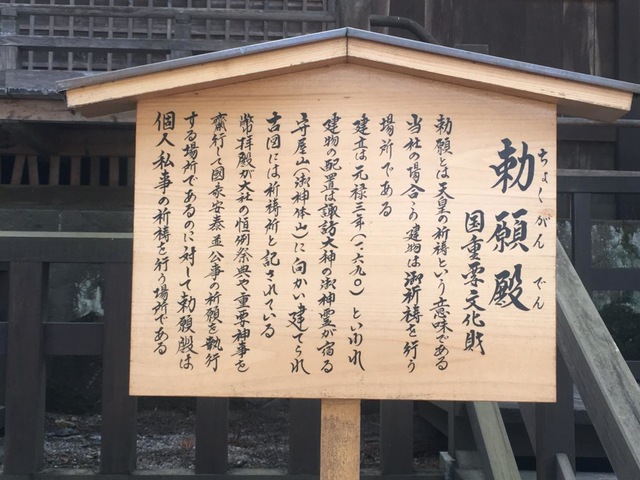 勅願殿
ちょくがんでん
国重要文化財
勅願とは天皇の祈祷という意味である
当社の場合、建物は御祈祷を行う
場所である
建立は元禄三年(一六九〇)といわれ
建物の配置は諏訪大神の御神霊が宿る
守屋山(御神体山)に向かい建てられ
古図には祈祷所と記されている
幣拝殿が大社の恒例祭典や重要神事を
齋行して國家安泰並公事の祈願を執行
する場所であるのに対して勅願殿は
個人私事の祈祷を行う場所である